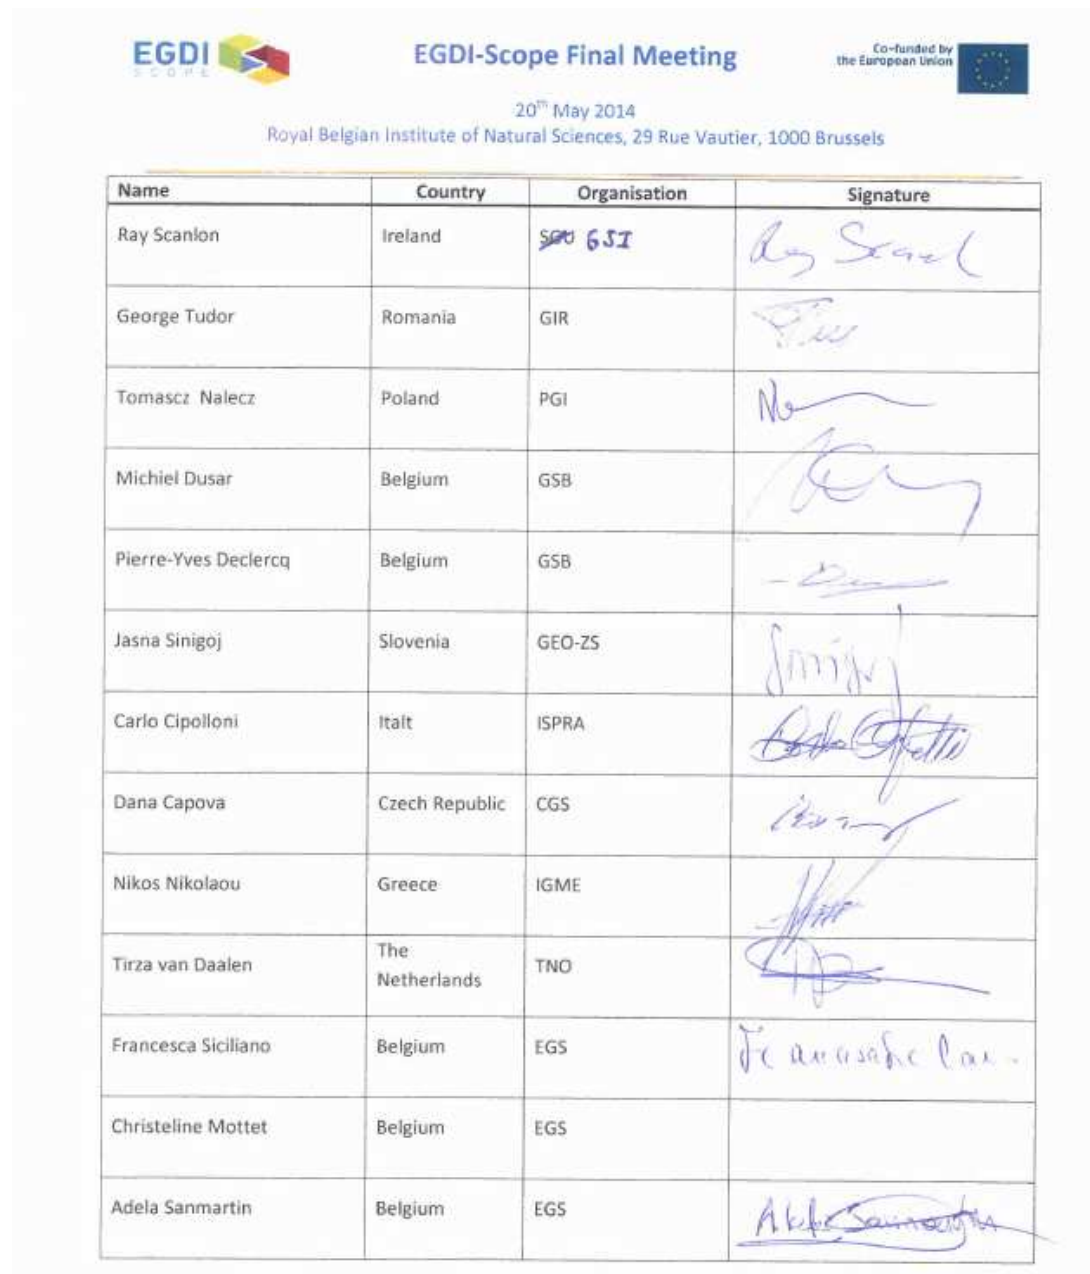 EGDI
SCOPE
EGDI-Scope Final Meeting
Co-funded by
the European Union
20th May 2014
Royal Belgian Institute of Natural Sciences, 29 Rue Vautier, 1000 Brussels
Name Country Organisation Signature
Ray Scanlon Ireland SGU GSI Ray Scanl
George Tudor Romania GIR
Tomascz Nalecz Poland PGI
Michiel Dusar Belgium GSB
Pierre-Yves Declercq Belgium GSB
Jasna Sinigoj Slovenia GEO-ZS Sinigoj
Carlo Cipolloni Italt ISPRA
Dana Capova Czech Republic CGS
Nikos Nikolaou Greece IGME
Tirza van Daalen The
Netherlands TNO
Francesca Siciliano Belgium EGS
Christeline Mottet Belgium EGS
Adela Sanmartin Belgium EGS Adela Sanmartin